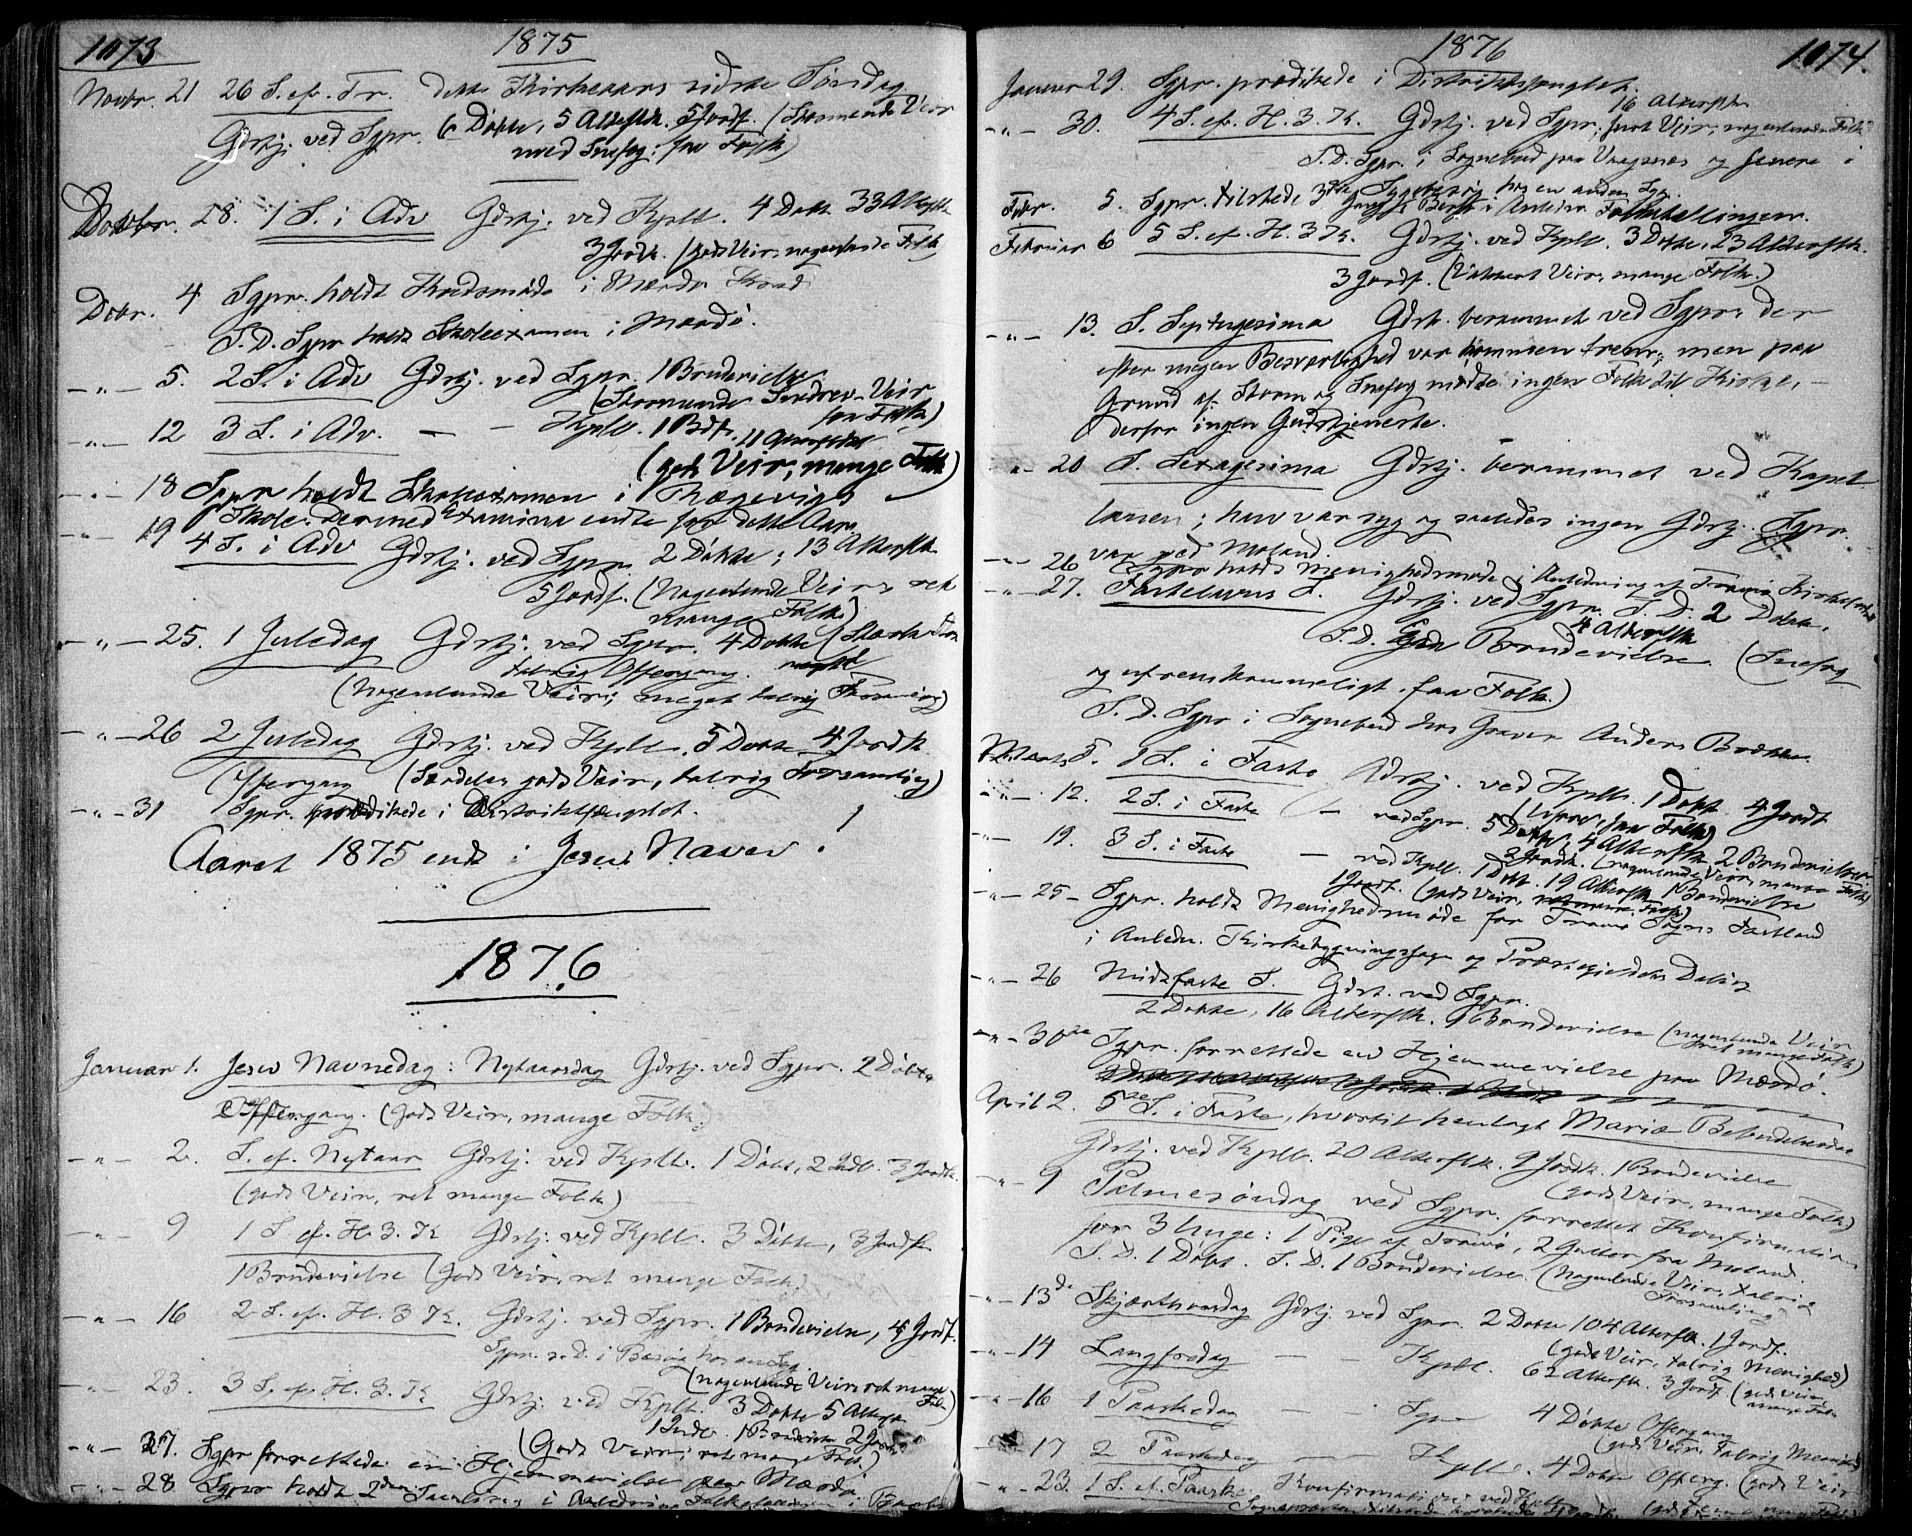 1073
1875
Novbr. 21 26 S. ef. Tr. dette Kirkeaars sidste Søndag
Gdstj. ved Sgpr. 6 Døbte, 5 Altergstk. 5 Jordf. (Stormende Veir
med Snefog: faa Folk)
28. 1 S. i Adv Gdstj. ved Kpll. 4 Døbte 33 Altergstk
3 Jordk. (godt Veir, nogenlunde Folk)
Debr. 4 Sgpr. holdt Kredsmøde i Mærdø Kreds
S. D. Sgpr holdt Skoleexamen i Mærdø.
-"- 5. 2 S. i Adv Gdstj. ved Sgpr. 1 Brudevielse
(Stormende Veir
faa Folk)
-"- 12 3 S. i Adv. — - Kpll. 1 Bdf. 11
(godt Veir, mange Folk)
-"- 18 Sgpr holdt Skoleexamen i Rægevigs
Skole. Dermed Examina endte for dette Aar.
-"- 19 4 S. i Adv Gdstj. ved Sgpr. 2 Døbte; 13 Altergstk.
5 Jordf. (Nogenlunde Veir, ret
mange Folk)
-"- 25. 1 Juledag Gdstj. ved Sgpr. 4 Døbte (Stærk
talrig Offergang.
(Nogenlunde Veir; meget talrig Forsamling)
-"- 26 2 Juledag Gdstj. ved Kpll. 5 Døbte 4 Jordk.
Offergang (Særdeles godt Veir, talrig Forsamling)
-"- 31 Sgpr. prædikede i Distriktsfængslet.
Aaret 1875 endt i Jesu Navn!
1876
Januar 1. Jesu Navnedag: Nytaarsdag Gdstj. ved Sgpr. 2 Døbte
Offergang. (godt Veir, mange Folk)
-"- 2. S. ef. Nytaar Gdstj. ved Kpll. 1 Døbt, 2 Indl. 3 Jordk.
(godt Veir, ret mange Folk)
-"- 9 1 S. ef. H. 3. K Gdstj. ved Kpll. 3 Døbte, 3 Jordfk.
1 Brudevielse (Godt Veir, ret mange Folk)
-"- 16 2 S. ef. H. 3 K. Gdstj. ved Sgpr. 1 Brudevielse, 4 Jordf.
Sgpr. s. D. i Besøg hos en Syg.
(nogenlunde Veir, ret mange
Folk)
-"- 23. 3 S. ef. H. 3. K Gdstj. ved Kpll. 3 Døbte 5 Altergstk
1 Indl. 1 Brudevielse 2 Jordf.
(Godt Veir, ret mange Folk)
-"- 27. Sgpr forrettede en Hjemmevielse paa Mærdø.
-"- 28 Sgpr holdt 2den Samling i Anledning Folketællingen i
1074.
1876
Januar 29. Sgpr. prædikede i Distriktsfængslet.
16 Altergstk
-"- 30. 4 S. ef. H. 3. K. Gdstj. ved Sgpr. smukt Veir, nogenlunde Folk
S. D. Sgpr. i Sognebud paa Vragsnæs og senere i
Sygebesøg hos en anden Syg.
Febr. 5. Sgpr. tilstede 3die Gang i Anledn. Folketællingen.
Februar 6 5 S. ef. H. 3 K. Gdstj. ved Kpll. 3 Døbte, 23 Altergstk.
3 Jordf. (Vakkert Veir, mange Folk.)
-"- 13. S. Septuagesima Gdstj. berammet ved Sgpr. der
efter megen Besværlighed var kommen frem; men paa
Grund af Storm og Snefog mødte ingen Folk til Kirke, -
derfor ingen Gudstjeneste.
-"- 20 S. Sexagesima Gdstj. berammet ved Kapel
lanen; han var syg og saaledes ingen Gdstj. Sgpr.
var ved Moland.
-"- 26 Sgpr holdt Menighedsmøde i Anledning af Tromø Kirke
-"- 27. Fastelavns S. Gdstj. ved Sgpr. S. D. 2 Døbte,
4 Altergstk
S. D. Brudevielse. (Snefog
og ufremkommeligt. faa Folk.)
S. D. Sgpr i Sognebud hos Graver Anders Brække
Marts 5. 1 S. i Faste Gdstj. ved Kpll. 1 Døbt 4 Jordf.
(faa Folk)
-"- 12. 2 S. i Faste — ved Sgpr. 5 Døbte, 4 Altergstk 2 Brudevielser
3 Jordk. (nogenlunde Veir, mange Folk)
-"- 19. 3 S. i Faste — ved Kpll. 1 Døbt. 19 Altergstk 1 Brudevielse
1 Jordf. (godt Veir, Folk)
-"- 25 - Sgpr. holdt Menighedsmøde for Tromø Sogns Fastland
i Anledn. Kirkebygningssagen og Præstegjeldets Deling
-"- 26 Midtfaste S. Gdst. ved Sgpr.
2 Døbte, 16 Altergstk. 1 Brudevielse (nogenlunde Veir
ret mange Folk)
-"- 30te Sgpr. forrettede en Hjemmevielse paa Mærdø.
April 2. 5te S. i Faste, hvortil henlagt Mariæ Bebudelsesdag
Gdstj. ved Kpll. 20 Altergstk. 9 Jordk. 1 Brudevielse
(godt Veir, mange Folk)
-"- 9 Palmesøndag ved Sgpr. forrettet Konfirmation
for 3 Unge: 1 Pige af Tromø, 2 Gutter fra Moland.
S. D. 1 Døbt. S. D. 1 Brudevielse. (Nogenlunde Veir, talrig
Forsamling)
-"- 13de Skjærthorsdag Gdstj. ved Sgpr. 2 Døbte 104 Altergstk. 1 Jordf.
(godt Veir, talrig Menighed)
-"- 14 Langfredag — — Kpll. 62 Altergstk. 3 Jordf (godt Veir
mange Folk
-"- 16 1 Paaskedag — Sgpr 4 Døbte Offergang
(godt Veir, talrig Menighed)
-"- 17 2 Paaskedag — Kpll. 4 Døbte Offerg. (godt Veir
-"- 23. 1 S. ef. Paaske. Konfirmation ved Kpll.